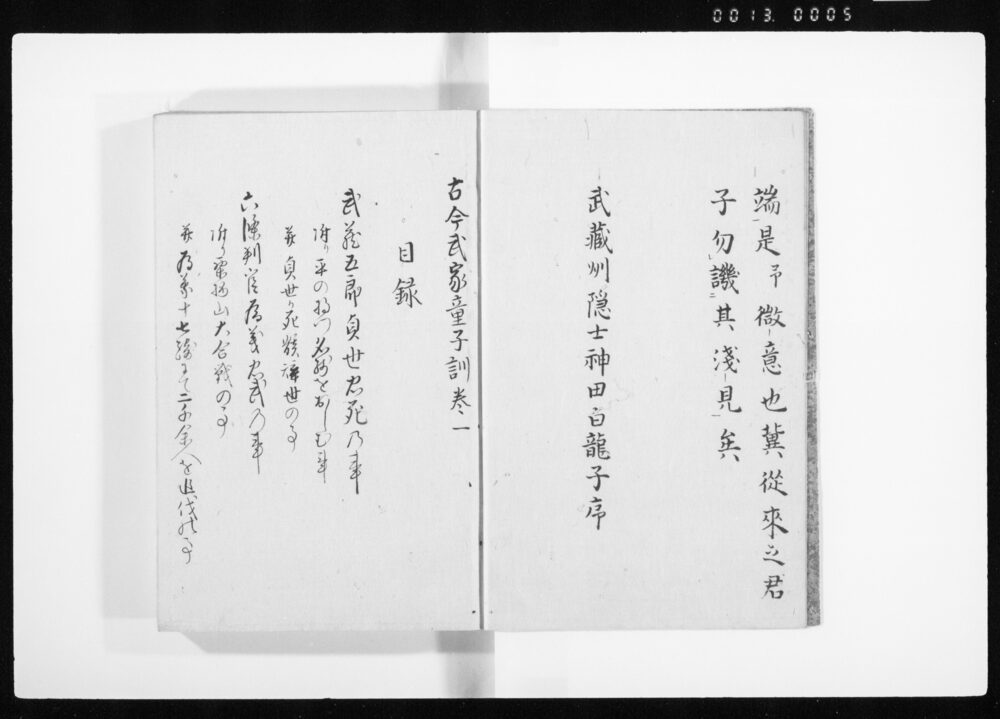 0013.0005
端是予微意也冀從來之君
子勿譏其淺見矣
武藏州隠士神田白龍子序
古今武家童子訓巻一
目録
武蔵五郎貞世忠死乃事
附り平の将門名跡をおしむ事
并貞世り死駭讓世の事
六條判官為義忠武乃事
附り栗栖山大合戦の事
并為義十七騎にて二千余人を追伐の事